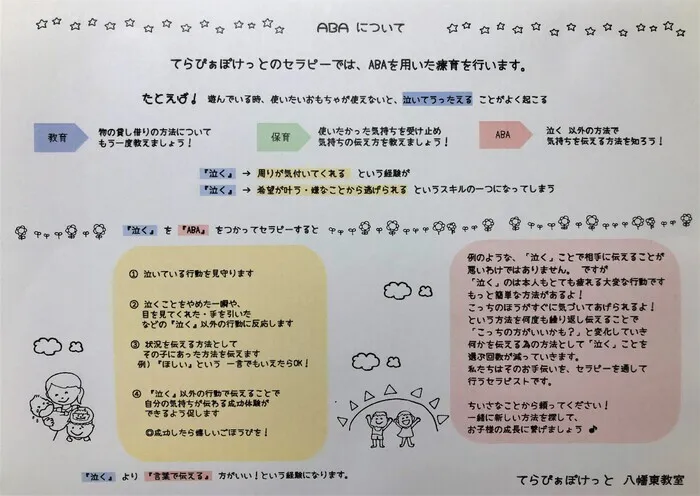 ABA について
てらぴぁぽけっとのセラピーでは、ABAを用いた療育を行います。
たとえば！ 遊んでいる時、使いたいおもちゃが使えないと、泣いてうったえる ことがよく起こる
教育 物の貸し借りの方法について
もう一度教えましょう！
保育 使いたかった気持ちを受け止め
気持ちの伝え方を教えましょう！
ABA 泣く 以外の方法で
気持ちを伝える方法を知ろう！
『泣く』 → 周りが気付いてくれる という経験が
『泣く』 → 希望が叶う・嫌なことから逃げられる というスキルの一つになってしまう
『泣く』 を 『ABA』 をつかってセラピーすると
① 泣いている行動を見守ります
② 泣くことをやめた一瞬や、
目を見てくれた・手を引いた
などの『泣く』以外の行動に反応します
③ 状況を伝える方法として
その子にあった方法を伝えます
例）『ほしい』という 一言でもいえたらOK！
④ 『泣く』以外の行動で伝えることで
自分の気持ちが伝わる成功体験が
できるよう促します
◎成功したら嬉しいごほうびを！
『泣く』 より 『言葉で伝える』 方がいい！という経験になります。
例のような、「泣く」ことで相手に伝えることが
悪いわけではありません。 ですが
「泣く」のは本人もとても疲れる大変な行動です
もっと簡単な方法があるよ！
こっちのほうがすぐに気づいてあげられるよ！
という方法を何度も繰り返し伝えることで
「こっちの方がいいかも？」と変化していき
何かを伝える為の方法として「泣く」ことを
選ぶ回数が減っていきます。
私たちはそのお手伝いを、セラピーを通して
行うセラピストです。
ちいさなことから頼ってください！
一緒に新しい方法を探して、
お子様の成長に繋げましょう ♪
てらぴぁぽけっと 八幡東教室